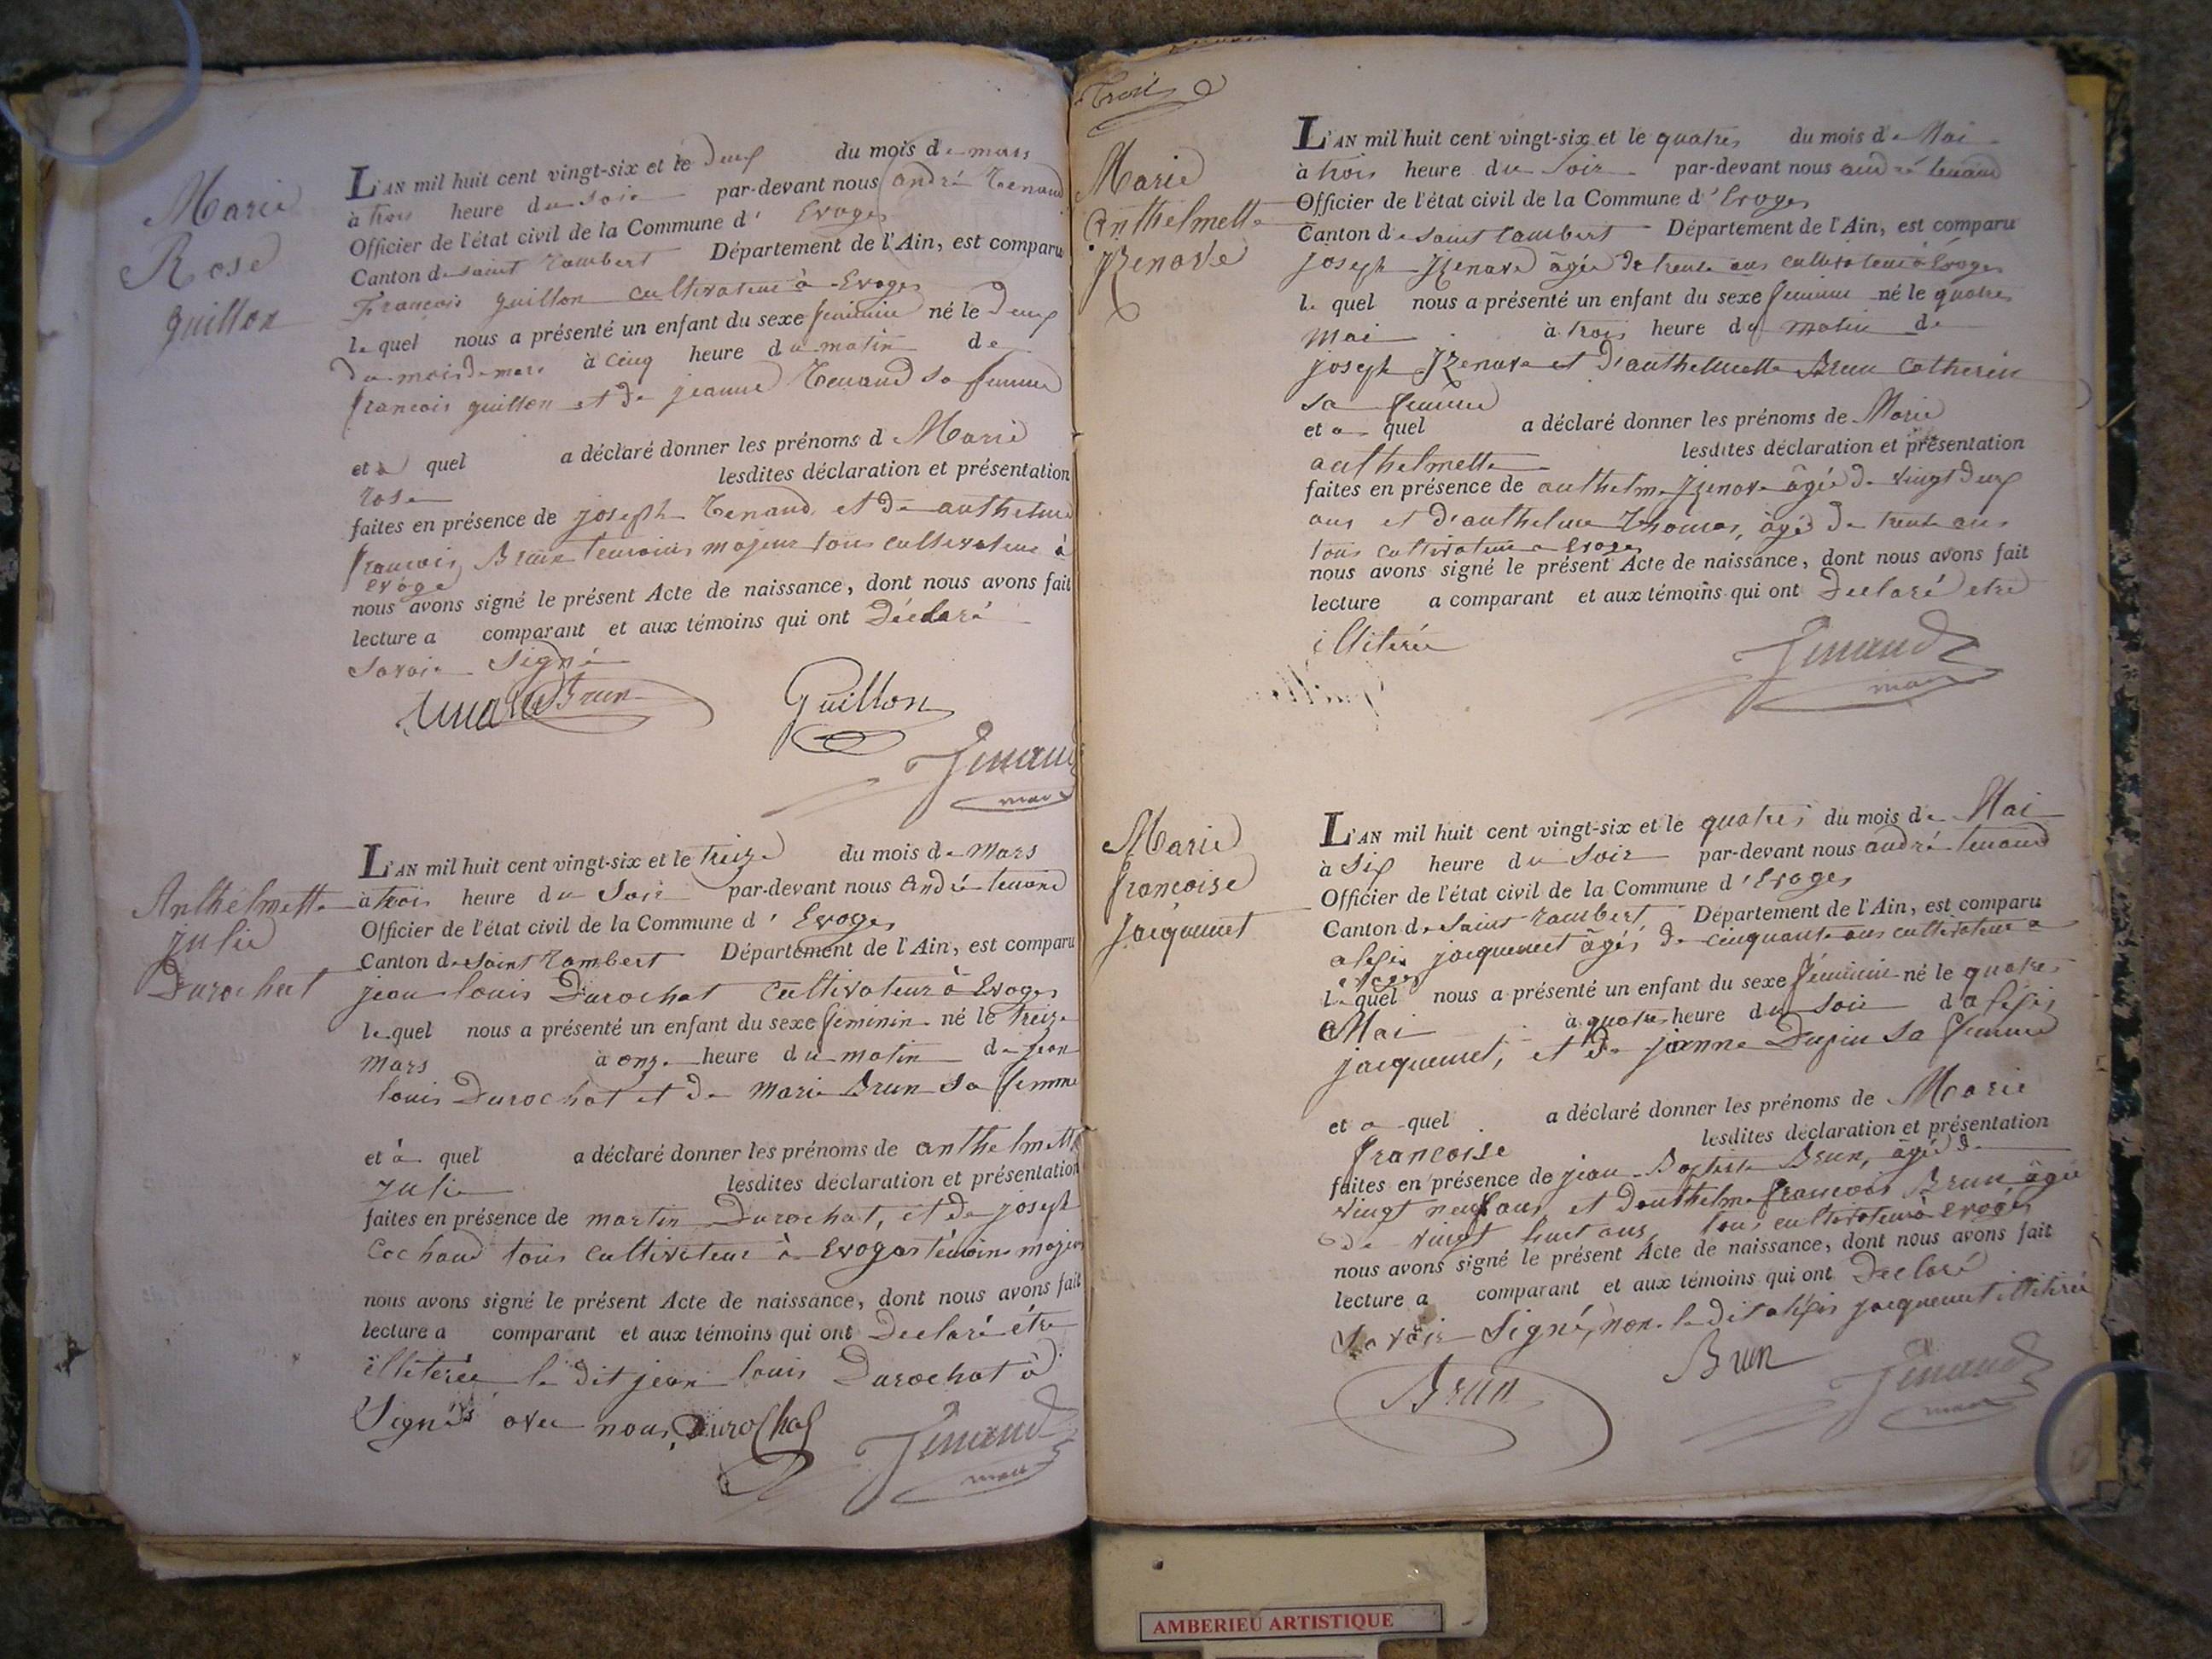 Marie
Rose
guillon
L'AN mil huit cent vingt-six et le deux du mois de mars
à trois heure du soir par-devant nous andré Tenand
Officier de l'état civil de la Commune d' Evoges
Canton de saint rambert Département de l'Ain, est comparu
François guillon cultivateur à Evoges
le quel nous a présenté un enfant du sexe feminin né le deux
du mois de mars à cinq heure du matin de
francois guillon et de jeanne Tenand sa femme
et à quel a déclaré donner les prénoms d Marie
rose lesdites déclaration et présentation
faites en présence de joseph Tenand et de anthelme
francois Brun temoins majeur tous cultivateur à
evoge
nous avons signé le présent Acte de naissance, dont nous avons fait
lecture a comparant et aux témoins qui ont Déclaré
savoir signé
Brun Guillon
Tenand
maire
Anthelmette
julie
Durochat
L'AN mil huit cent vingt-six et le treize du mois de mars
à trois heure du soir par-devant nous andré tenand
Officier de l'état civil de la Commune d' Evoges
Canton de saint rambert Département de l'Ain, est comparu
jean louis Durochat cultivateur à Evoges
le quel nous a présenté un enfant du sexe feminin né le treize
mars à onze heure du matin de jean
louis Durochat et de marie Brun sa femme
et à quel a déclaré donner les prénoms de anthelmette
julie lesdites déclaration et présentation
faites en présence de martin Durochat, et de joseph
Cochand tous cultivateur à Evoges témoins majeur
nous avons signé le présent Acte de naissance, dont nous avons fait
lecture a comparant et aux témoins qui ont Declaré étre
illiterée le dit jean louis Durochat à
signés avec nous Durochat
Tenand
maire
Trois
Marie
Anthelmette
jzenave
L'AN mil huit cent vingt-six et le quatres du mois de Mai
à trois heure du soir par-devant nous andré tenand
Officier de l'état civil de la Commune d' Evoges
Canton de saint rambert Département de l'Ain, est comparu
joseph jzenave âgée de trente ans cultivateur à Evoges
le quel nous a présenté un enfant du sexe feminin né le quatres
mai à trois heure du matin de
joseph jzenave et d'anthelmette Brun Catherin
sa femme
et a quel a déclaré donner les prénoms de Marie
anthelmette lesdites déclaration et présentation
faites en présence de anthelme jzenave âgée de vingt deux
ans et d'anthelme Thomas, âgé de trente ans
tous cultivateur a Evoges
nous avons signé le présent Acte de naissance, dont nous avons fait
lecture a comparant et aux témoins qui ont Declaré etre
illiterée
Tenand
maire
Marie
françoise
jacquemet
L'AN mil huit cent vingt-six et le quatres du mois de Mai
à six heure du soir par-devant nous andré tenand
Officier de l'état civil de la Commune d' Evoges
Canton de saint rambert Département de l'Ain, est comparu
alexis jacquemet âgés de cinquante ans cultivateur a
evoges
le quel nous a présenté un enfant du sexe féminin né le quatres
Mai à quatres heure du soir d'alexis
jacquemet, et de jeanne Dupin sa femme
et a quel a déclaré donner les prénoms de Marie
francoise lesdites déclaration et présentation
faites en présence de jean Baptiste Brun, âgéé de
vingt neuf ans, et d'anthelme francois Brun âgée
de vingt huit ans, tous cultivateur à evoges
nous avons signé le présent Acte de naissance, dont nous avons fait
lecture a comparant et aux témoins qui ont Declaré
savoir signé, non le dit alexis jacquemet illiterée
Brun Brun Tenand
maire
AMBERIEU ARTISTIQUE